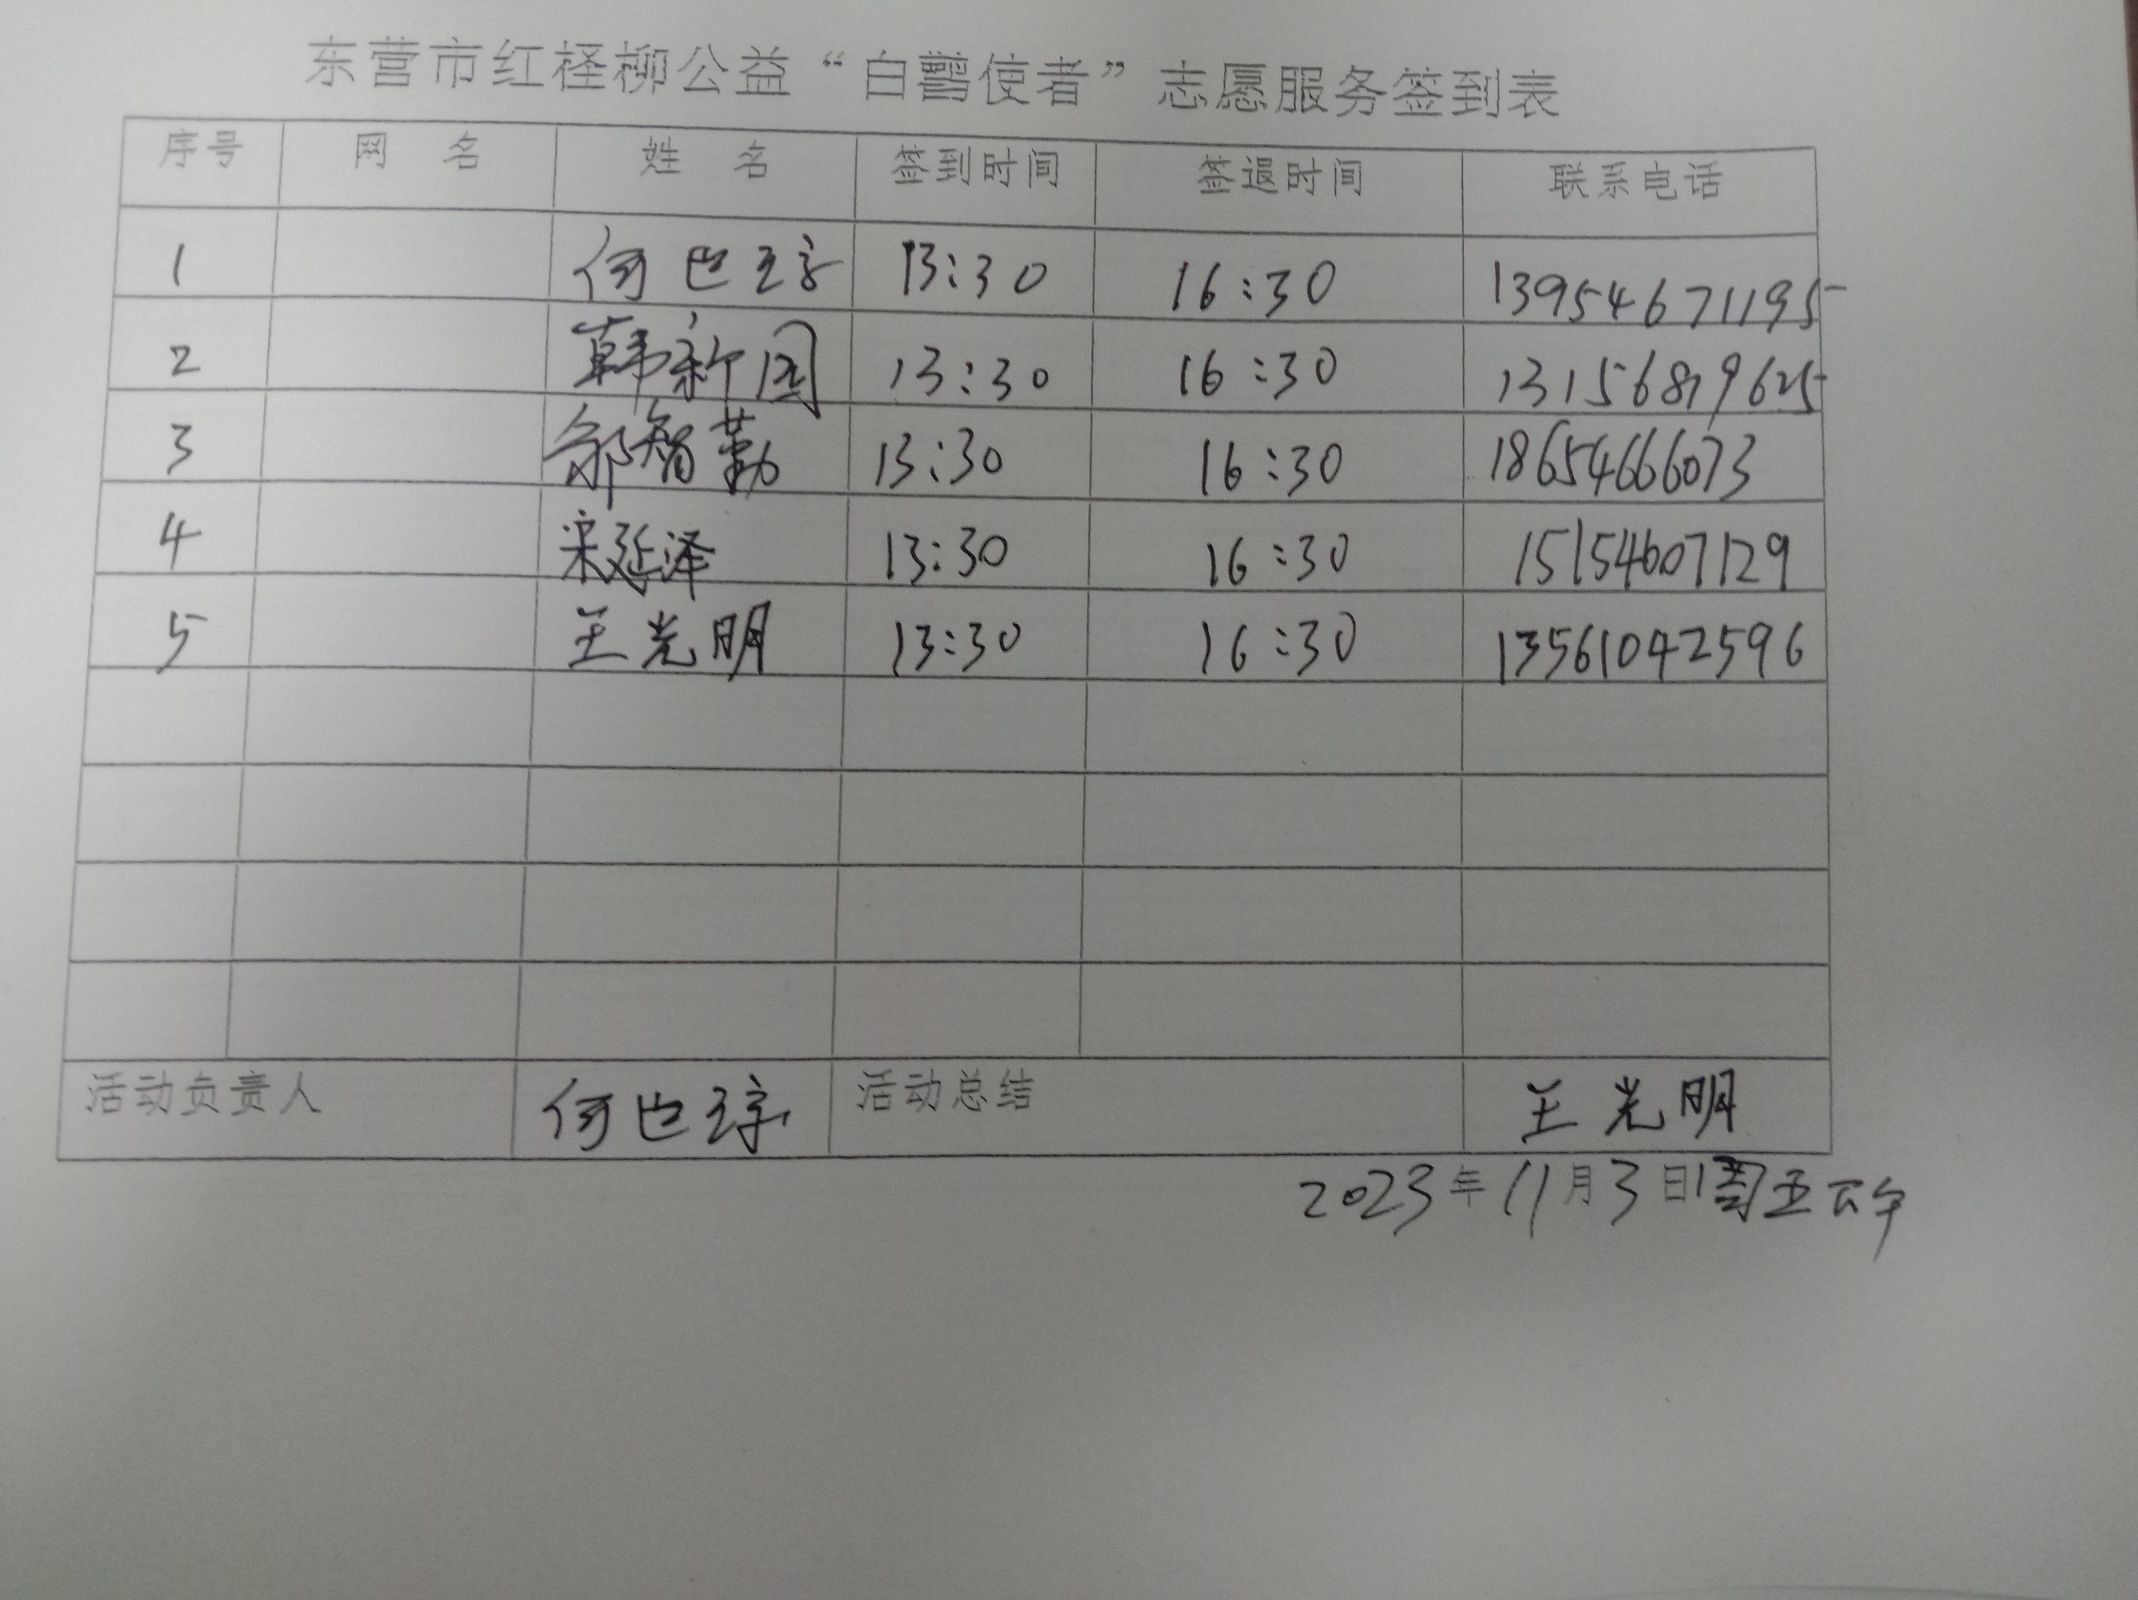 东营市红柽柳公益“白鹳使者”志愿服务签到表
序号 网 名 姓 名 签到时间 签退时间 联系电话
1 何也 13:30 16:30 13954671195
2 韩新国 13:30 16:30
3 智勤 13:30 16:30 18654666073
4 宋延泽 13:30 16:30 15154607129
5 王光明 13:30 16:30 13561042596
活动负责人 何也 活动总结 王光明
2023年11月3日周五下午